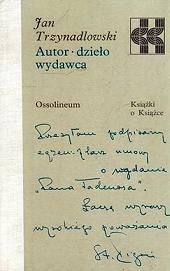 Jan
Trzynadlowski
Autor · dzieło
wydawca
Ossolineum
Książki
o Książce
Przesyłam podpisany
egzemplarz umowy
o wydanie
"Pana Tadeusza".
Łączę wyrazy
wysokiego poważania
St. Pigoń